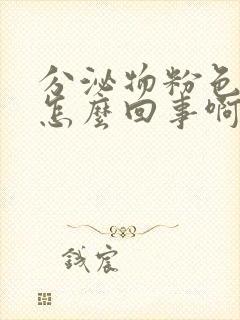 分泌物粉色
怎麼回事啊
钱宸